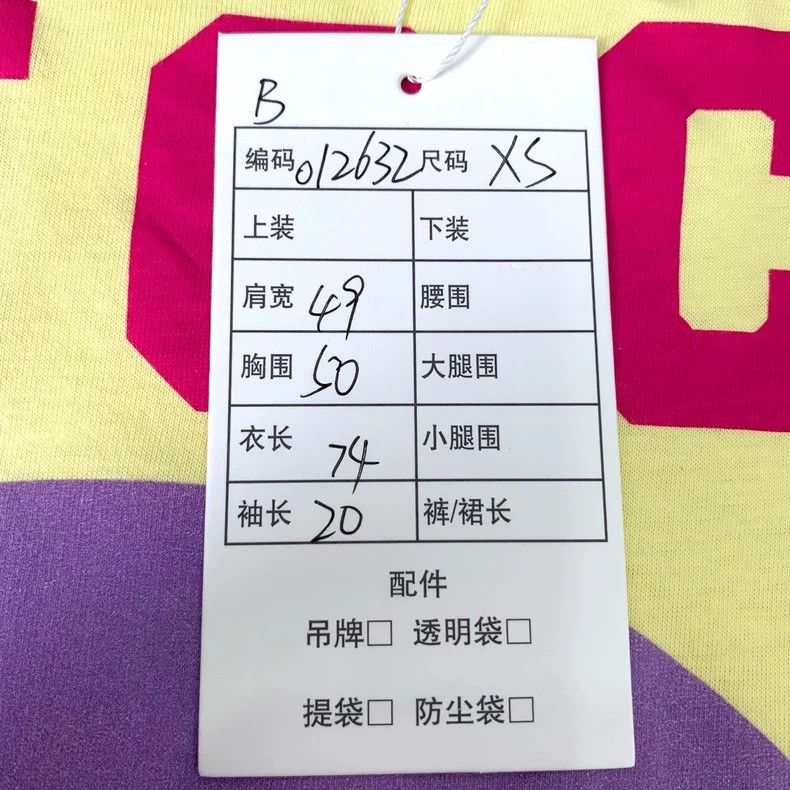 B
编码 012632 尺码 XS
上装 下装
肩宽 49 腰围
胸围 50 大腿围
衣长 74 小腿围
袖长 20 裤/裙长
配件
吊牌□ 透明袋□
提袋□ 防尘袋□